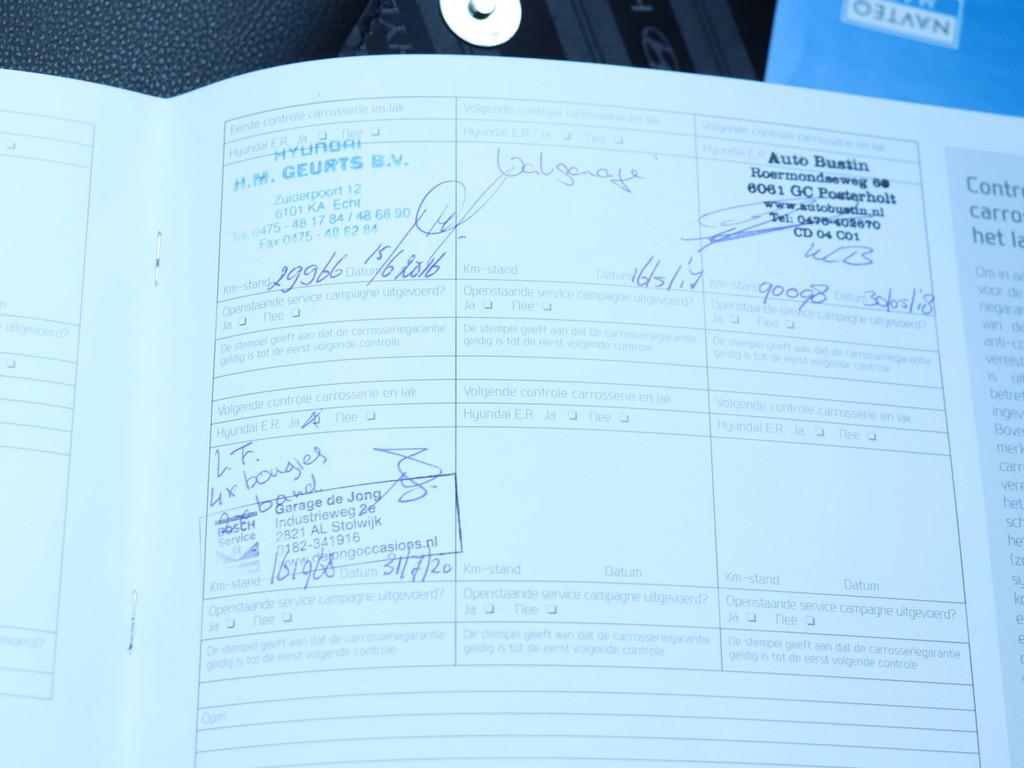 NAVTEQ
Eerste controle carrosserie en lak
Hyundai E.R. Ja Nee
HYUNDAI
H.M. GEURTS B.V.
Zuiderpoort 12
6101 KA Echt
Tel. 0475 - 48 17 84 / 48 68 90
Fax 0475 - 48 82 84
Km-stand 29966 Datum 15/6 2016
Openstaande service campagne uitgevoerd?
Ja Nee
De stempel geeft aan dat de carrosseriegarantie
geldig is tot de eerst volgende controle
Volgende controle carrosserie en lak
Hyundai E.R. Ja Nee
Km-stand Datum 16/5/17
Openstaande service campagne uitgevoerd?
Ja Nee
De stempel geeft aan dat de carrosseriegarantie
geldig is tot de eerst volgende controle
Volgende controle carrosserie en lak
Hyundai E.R.
Auto Bustin
Roermondseweg 60
6061 GC Posterholt
www.autobustin.nl
Tel: 0475-402670
CD 04 C01
Km-stand 90098 Datum 30/05/18
Openstaande service campagne uitgevoerd?
Ja Nee
De stempel geeft aan dat de carrosseriegarantie
geldig is tot de eerst volgende controle
Volgende controle carrosserie en lak
Hyundai E.R. Ja Nee
L.F.
4x bougies
band
BOSCH
Service
Garage de Jong
Industrieweg 2e
2821 AL Stolwijk
0182-341916
www.dejongoccasions.nl
Km-stand 161968 Datum 31/7/20
Openstaande service campagne uitgevoerd?
Ja Nee
De stempel geeft aan dat de carrosseriegarantie
geldig is tot de eerst volgende controle
Volgende controle carrosserie en lak
Hyundai E.R. Ja Nee
Km-stand Datum
Openstaande service campagne uitgevoerd?
Ja Nee
De stempel geeft aan dat de carrosseriegarantie
geldig is tot de eerst volgende controle
Volgende controle carrosserie en lak
Hyundai E.R. Ja Nee
Km-stand Datum
Openstaande service campagne uitgevoerd?
Ja Nee
De stempel geeft aan dat de carrosseriegarantie
geldig is tot de eerst volgende controle
Opm:
Contro
carros
het la
Om in aa
voor de